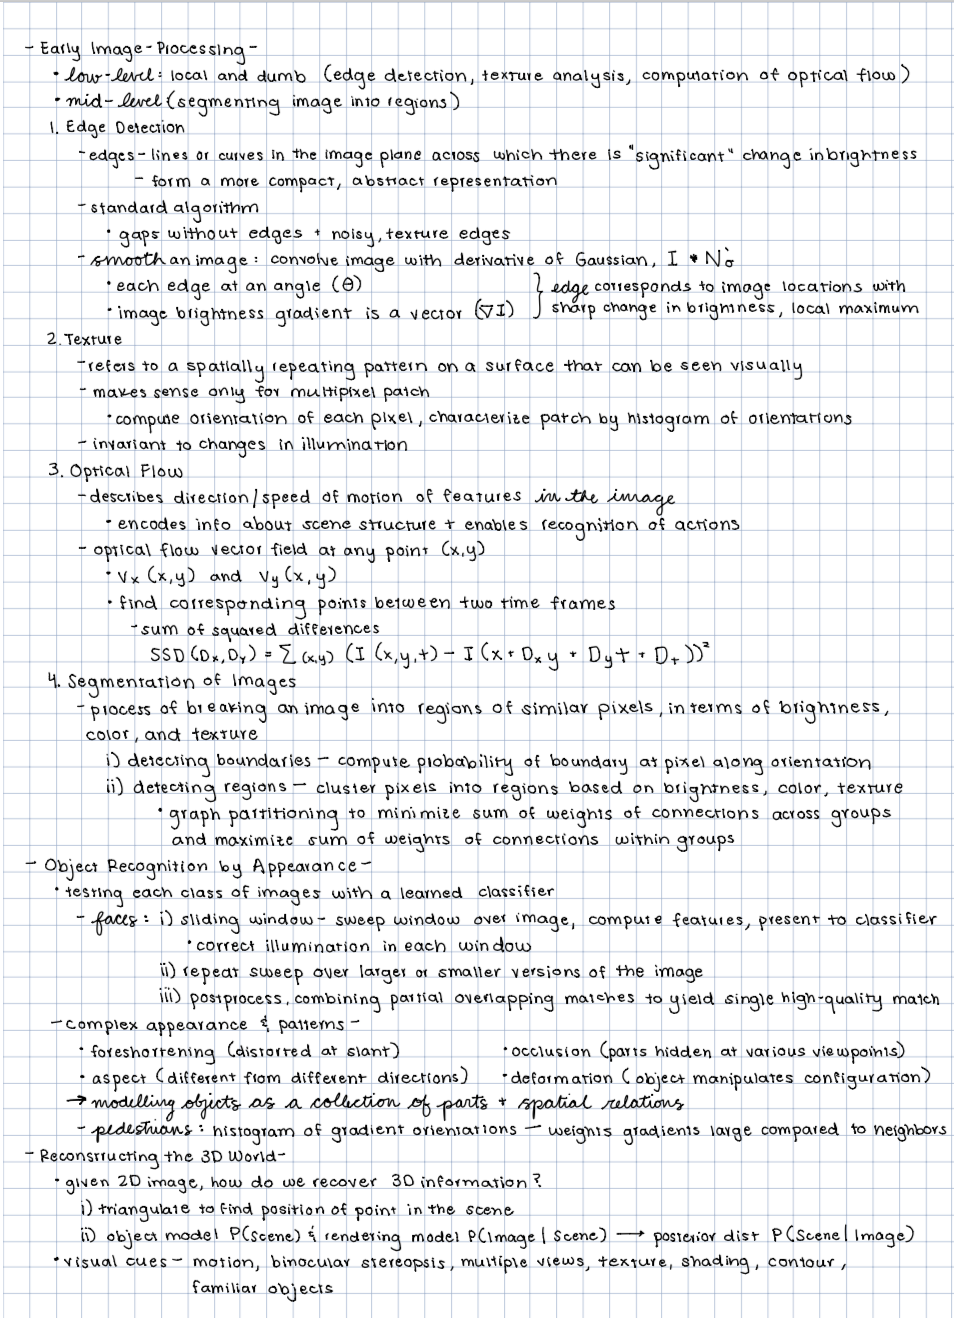 - Early Image-Processing -
• low-level: local and dumb (edge detection, texture analysis, computation of optical flow)
• mid-level (segmenting image into regions)
1. Edge Detection
- edges - lines or curves in the image plane across which there is "significant" change in brightness
- form a more compact, abstract representation
- standard algorithm
• gaps without edges + noisy, texture edges
- smooth an image: convolve image with derivative of Gaussian, I * N'σ
• each edge at an angle (θ) } edge corresponds to image locations with
• image brightness gradient is a vector (∇I) sharp change in brightness, local maximum
2. Texture
- refers to a spatially repeating pattern on a surface that can be seen visually
- makes sense only for multipixel patch
• compute orientation of each pixel, characterize patch by histogram of orientations
- invariant to changes in illumination
3. Optical Flow
- describes direction/speed of motion of features in the image
• encodes info about scene structure + enables recognition of actions
- optical flow vector field at any point (x,y)
• Vx (x,y) and Vy (x,y)
• find corresponding points between two time frames
- sum of squared differences
SSD (Dx, Dy) = Σ(x,y) (I (x,y,t) - I (x + Dx y + Dy t + Dt))²
4. Segmentation of Images
- process of breaking an image into regions of similar pixels, in terms of brightness,
color, and texture
i) detecting boundaries - compute probability of boundary at pixel along orientation
ii) detecting regions - cluster pixels into regions based on brightness, color, texture
• graph partitioning to minimize sum of weights of connections across groups
and maximize sum of weights of connections within groups
- Object Recognition by Appearance -
• testing each class of images with a learned classifier
- faces: i) sliding window - sweep window over image, compute features, present to classifier
• correct illumination in each window
ii) repeat sweep over larger or smaller versions of the image
iii) postprocess, combining partial overlapping matches to yield single high-quality match
- complex appearance & patterns -
• foreshortening (distorted at slant) • occlusion (parts hidden at various viewpoints)
• aspect (different from different directions) • deformation (object manipulates configuration)
→ modelling objects as a collection of parts + spatial relations
- pedestrians: histogram of gradient orientations - weights gradients large compared to neighbors
- Reconstructing the 3D World -
• given 2D image, how do we recover 3D information?
i) triangulate to find position of point in the scene
ii) object model P(Scene) & rendering model P(Image | Scene) → posterior dist P(Scene | Image)
• visual cues - motion, binocular stereopsis, multiple views, texture, shading, contour,
familiar objects